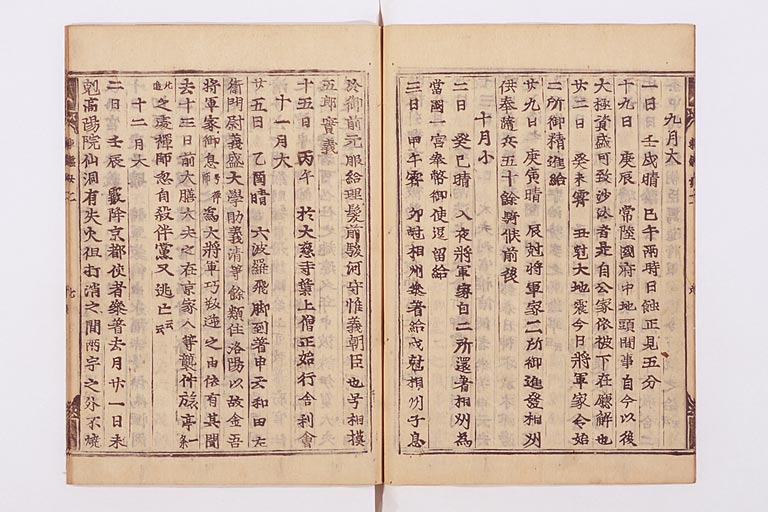 九月大
一日 壬戌晴 巳午兩時日蝕正見五分
十九日 庚辰 常陸國府中地頭間事自今以後
大極資盛可致沙汰者是自公家依被下在廳解也
廿二日 癸未霽 丑尅大地震今日將軍家令始
二所御精進給
廿九日 庚寅晴 辰尅將軍家二所御進發相州
供奉隨兵五十餘騎候前後
十月小
二日 癸巳晴 入夜將軍家自二所還著相州為
當國一宮奉幣御使逗留給
三日 甲午霽 卯尅相州參著給戌尅相州子息
於御前元服給理髮前駿河守惟義朝臣也号相摸
五郎實義
十五日 丙午 於大慈寺葉上僧正始行舍利會
十一月大
廿五日 乙酉晴 六波羅飛脚到著申云和田六
衛門尉義盛大學助義清等餘類住洛陽以故金吾
將軍家御息 為大將軍巧叛逆之由依有其聞
去十三日前大膳大夫之在京家人等襲件旅亭
之處禪師忽自殺伴黨又逃亡云云
十二月大
二日 壬辰 霰降京都使者參著去月廿一日未
尅高陽院仙洞有失火但打消之間兩字之外不燒